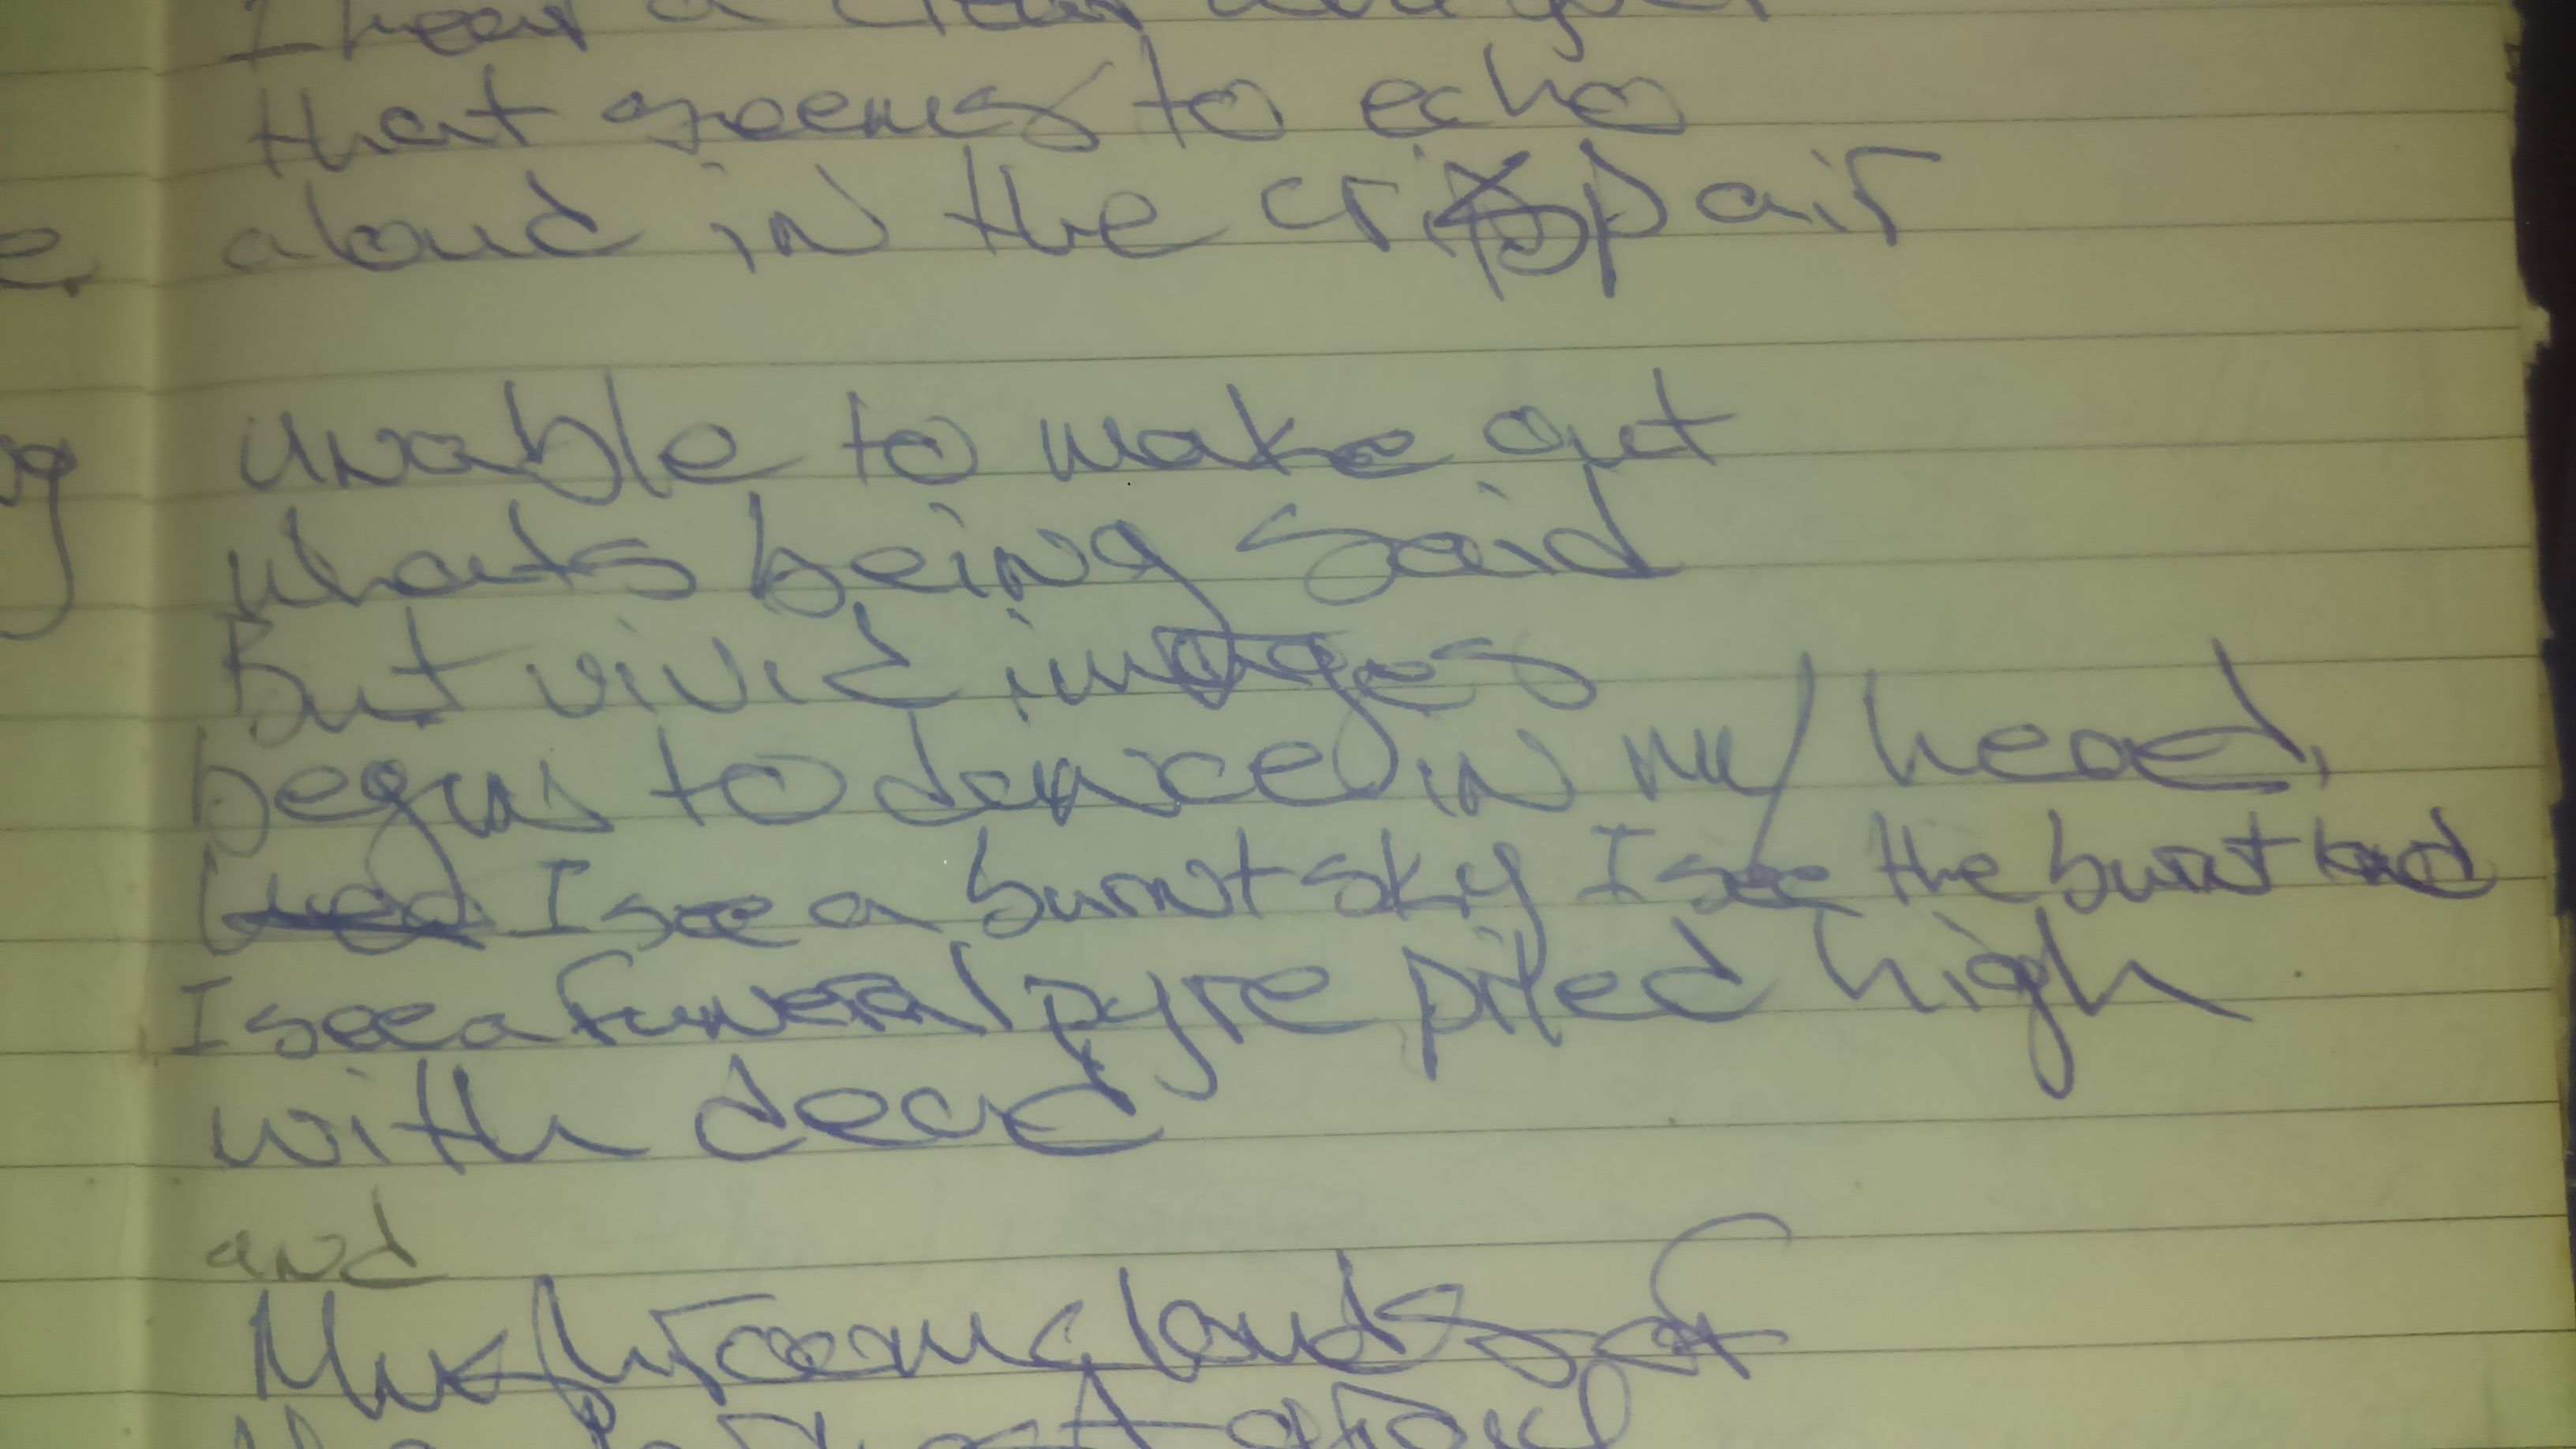 I hear a clear
that seems to echo
aloud in the crisp air
unable to make out
whats being said
But vivid images
begin to dance in my head,
I see a burnt sky I see the burnt land
I see a funeral pyre piled high
with dead
and
Mushroom clouds of